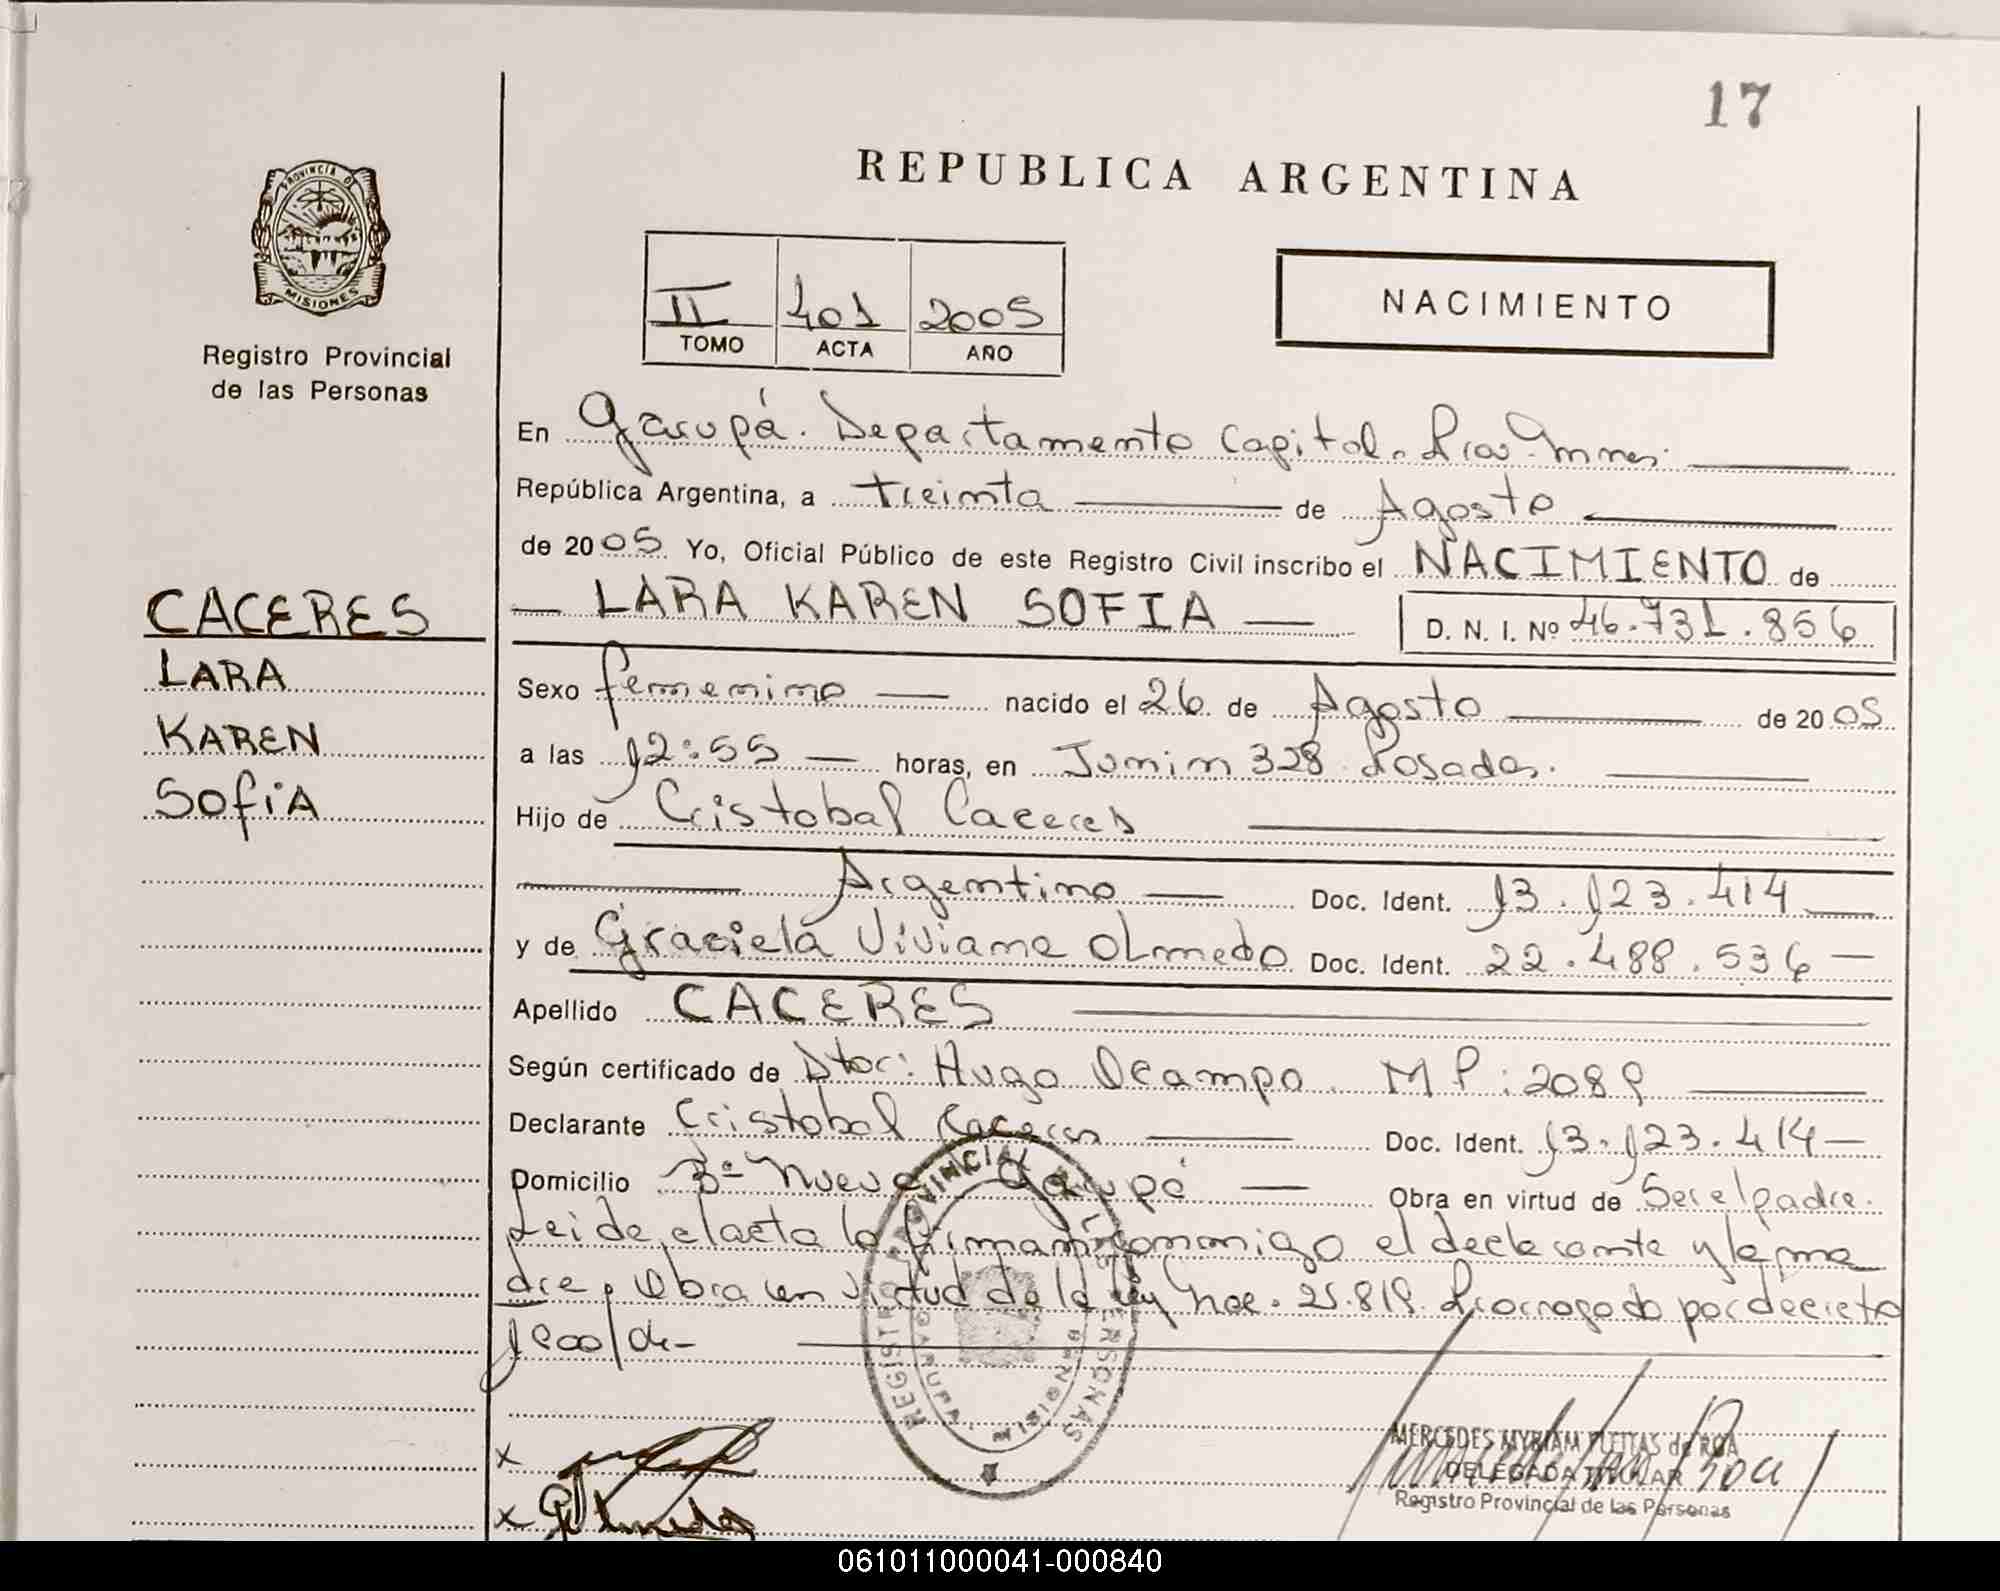 17
REPUBLICA ARGENTINA
PROVINCIA DE
MISIONES
Registro Provincial
de las Personas
II 401 2005
TOMO ACTA AÑO
NACIMIENTO
En Garupá. Departamento Capital. Mnes.
República Argentina, a treinta de Agosto
de 2005 Yo, Oficial Público de este Registro Civil inscribo el NACIMIENTO de
LARA KAREN SOFIA D. N. I. Nº 46.731.856
CACERES
LARA
KAREN
SofiA
Sexo femenino nacido el 26 de Agosto de 2005
a las 12:55 horas, en Junin 328 Posadas.
Hijo de Cristobal Caceres
Argentino Doc. Ident. 13.123.414
y de Graciela Viviana Olmedo Doc. Ident. 22.488.536
Apellido CACERES
Según certificado de Dtor: Hugo Ocampo. M P: 2089
Declarante Cristobal Caceres Doc. Ident. 13.123.414
Domicilio Bº Nuevo Garupá Obra en virtud de Ser el padre.
Leida el acta la firman conmigo el declarante y la ma
dre. Obra en virtud de la ley 25.819. Prorrogado por decreto
REGISTRO PROVINCIAL DE LAS PERSONAS
GARUPA MISIONES
MERCEDES MYRIAM FLEITAS de ROA
DELEGADA TITULAR
Registro Provincial de las Personas
061011000041-000840